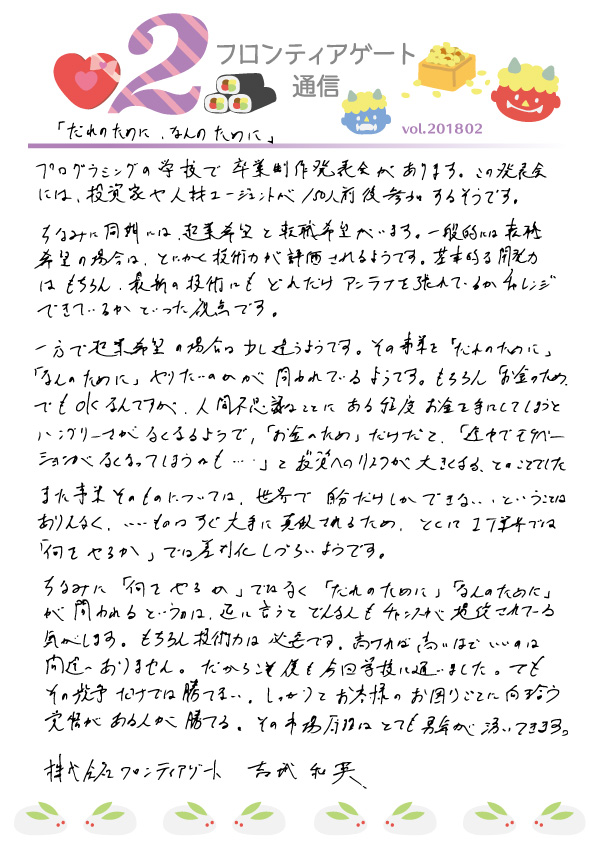 2
フロンティアゲート
通信
vol.201802
「だれのために、なんのために」
プログラミングの学校で卒業制作発表会があります。この発表会
には、投資家や人材エージェントが100人前後参加するそうです。
ちなみに同期には、起業希望と転職希望がいます。一般的には転職
希望の場合は、とにかく技術力が評価されるようです。基本的な開発力
はもちろん、最新の技術にもどれだけアンテナを張れているかチャレンジ
できているかといった視点です。
一方で起業希望の場合は少し違うようです。その事業を「だれのために」
「なんのために」やりたいのかが問われているようです。もちろんお金のため
でもOKなんですが、人間不思議なことにある程度お金を手にしてしまうと
ハングリーさがなくなるようで、「お金のため」だけだと、「途中でモチベー
ションがなくなってしまうのも…」と投資へのリスクが大きくなる、とのことでした
また事業そのものについては、世界で自分だけしかできない、ということは
ありえなく、いいものはすぐ大手に真似されるため、とくにIT業界では
「何をやるか」では差別化しづらいようです。
ちなみに「何をやるか」ではなく「だれのために」「なんのために」
が問われるというのは、逆に言うとどんな人もチャンスが提供されている
気がします。もちろん技術力は必要です。高ければ高いほどいいのは
間違いありません。だからこそ僕も今回学校に通いました。でも
その競争だけでは勝てない。しっかりとお客様のお困りごとに向き合う
覚悟がある人が勝てる。その市場原理はとても勇気が湧いてきます。
株式会社フロンティアゲート 吉武和英